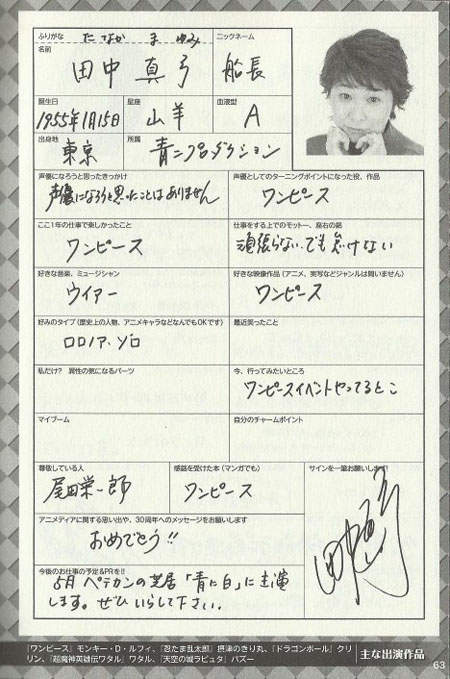 ふりがな たなか まゆみ ニックネーム
名前 田中 真弓 船長
誕生日 星座 血液型
1955年1月15日 山羊 A
出身地 所属
東京 青二プロダクション
声優になろうと思ったきっかけ 声優としてのターニングポイントになった役、作品
声優になろうと思ったことはありません ワンピース
ここ1年の仕事で楽しかったこと 仕事をする上でのモットー、座右の銘
ワンピース 頑張らない、でも怠けない
好きな音楽、ミュージシャン 好きな映像作品(アニメ、実写などジャンルは問いません)
ウィアー ワンピース
好みのタイプ(歴史上の人物、アニメキャラなどなんでもOKです) 最近笑ったこと
ロロノア、ゾロ
私だけ? 異性の気になるパーツ 今、行ってみたいところ
ワンピースイベントやってるとこ
マイブーム 自分のチャームポイント
尊敬している人 感銘を受けた本(マンガでも) サインを一筆お願いします!
尾田栄一郎 ワンピース 田中真弓
アニメディアに関する思い出や、30周年へのメッセージをお願いします
おめでとう!!
今後のお仕事の予定&PRを!!
5月 ペテカンの芝居「青に白」に主演
します。ぜひいらして下さい。
『ワンピース』モンキー・D・ルフィ、『忍たま乱太郎』摂津のきり丸、『ドラゴンボール』クリ
リン、『超魔神英雄伝ワタル』ワタル、『天空の城ラピュタ』パズー
主な出演作品
63